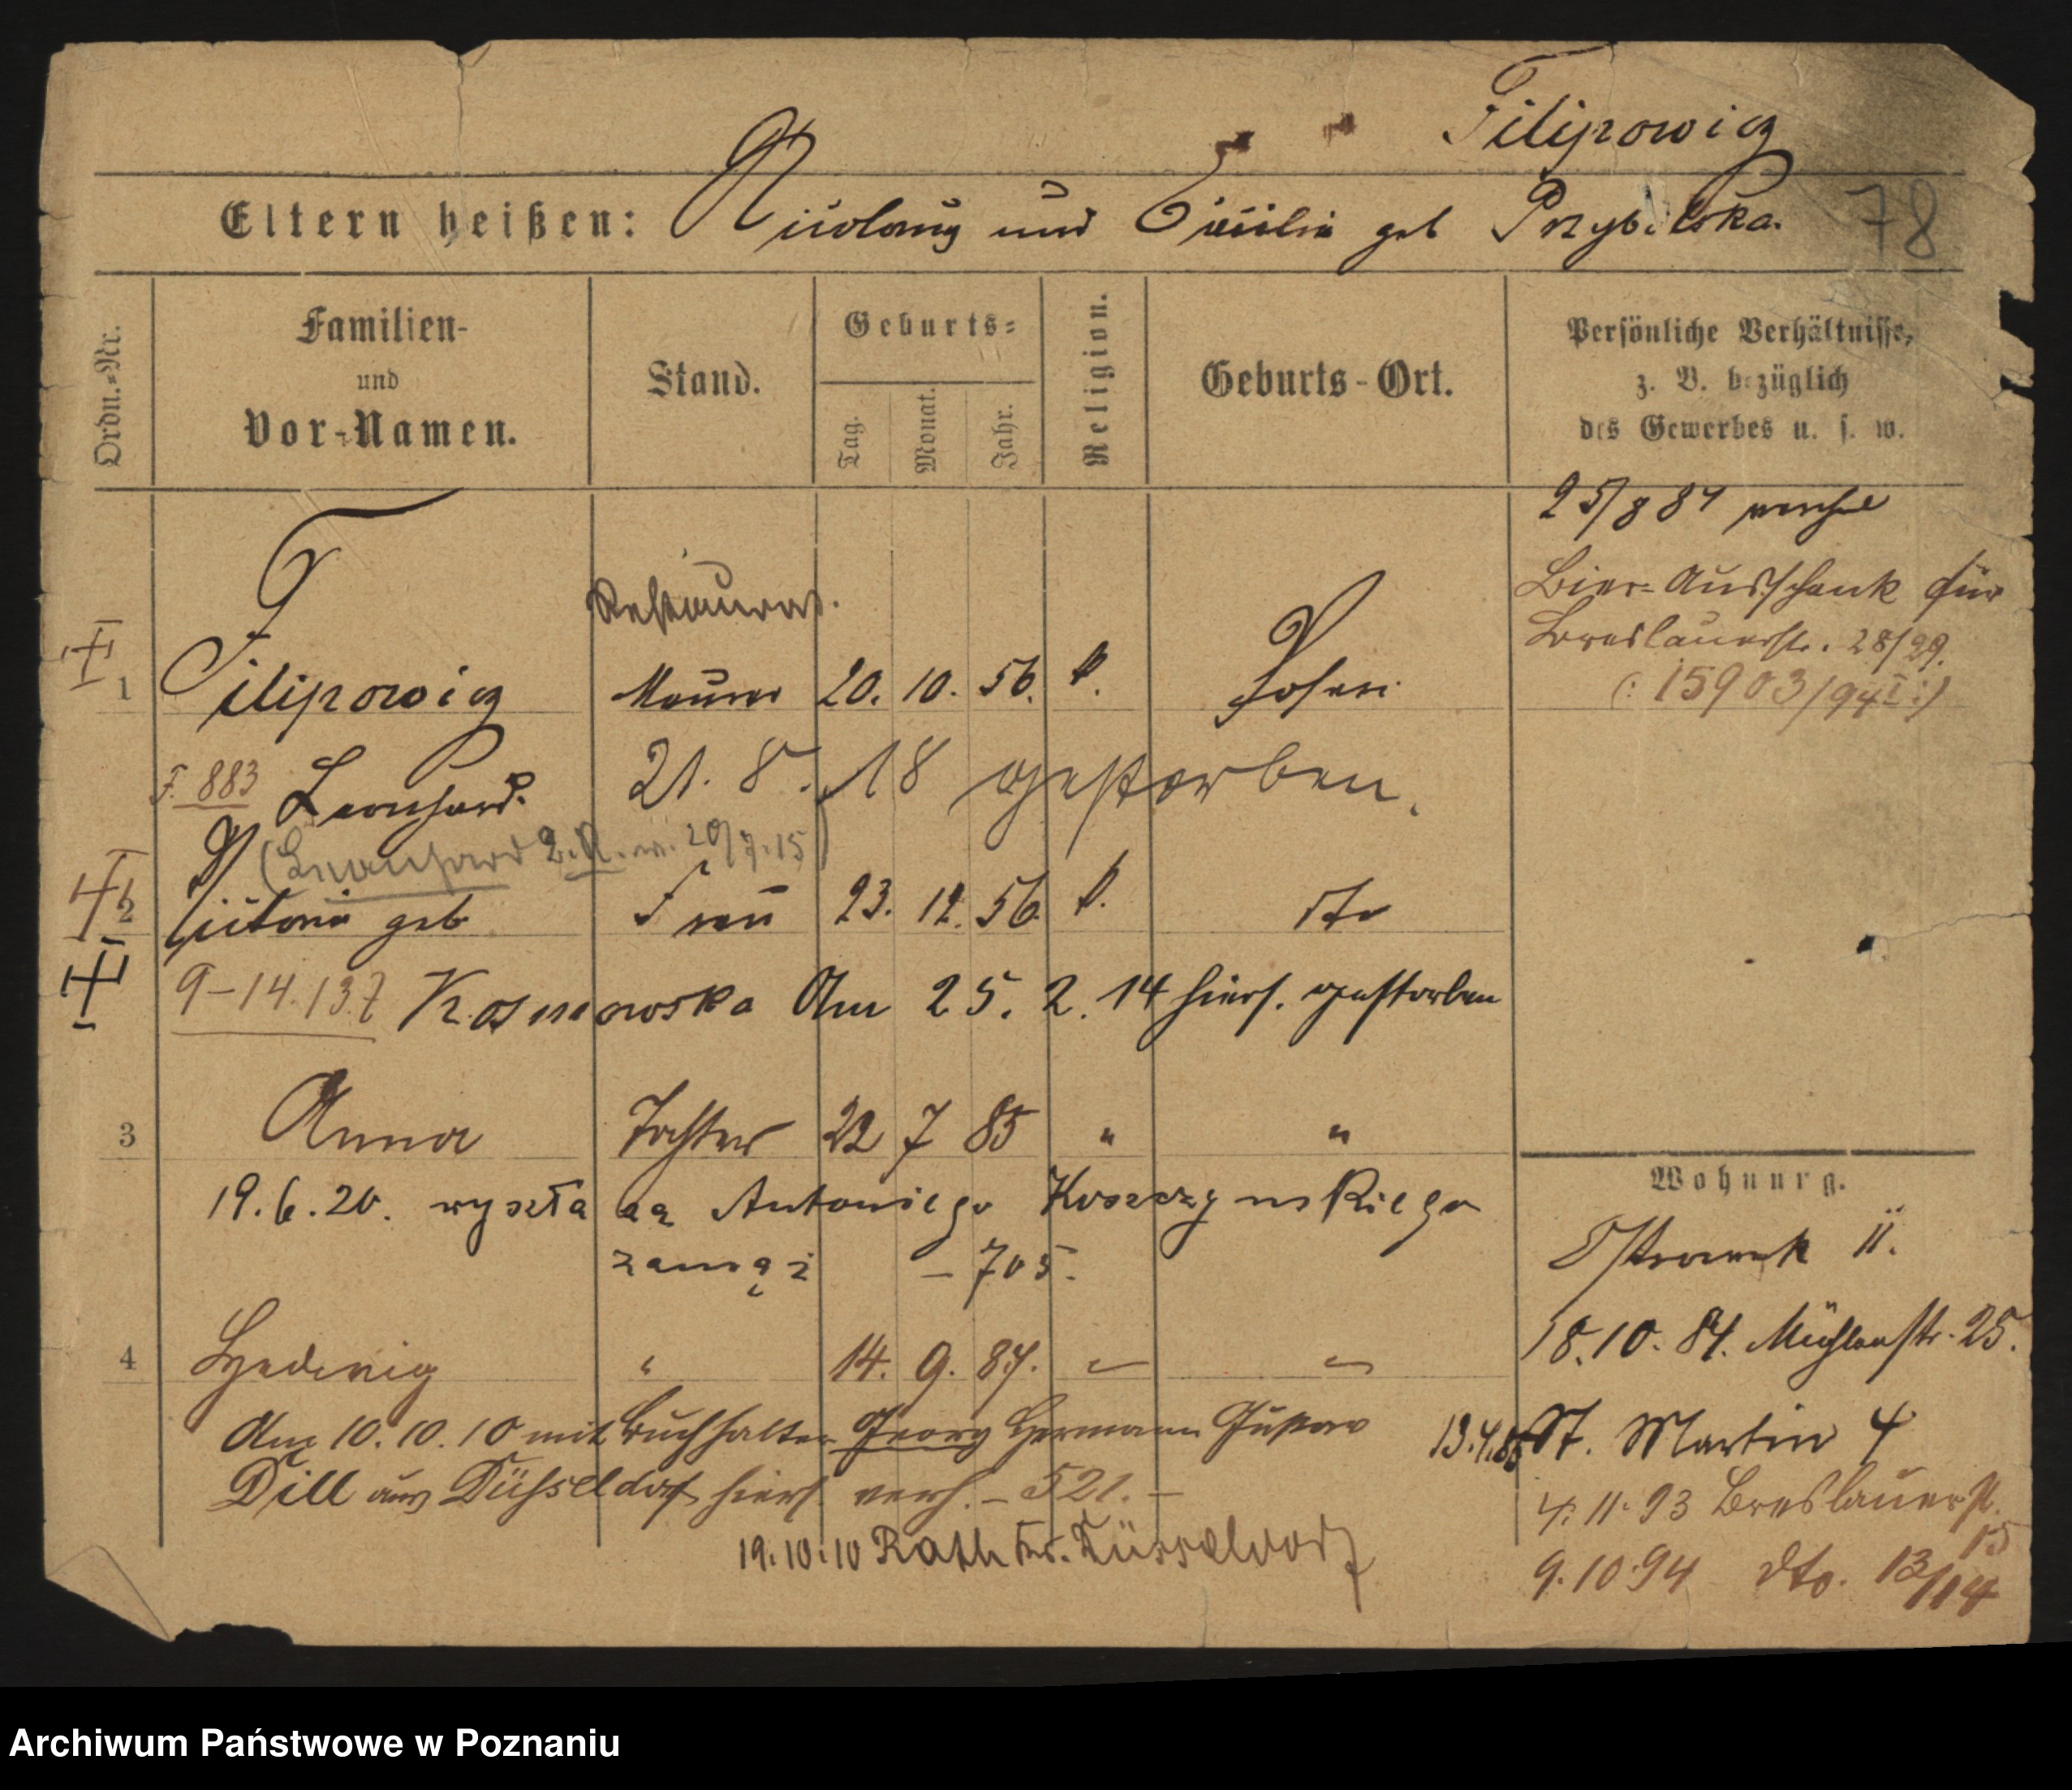 Filipowicz
Eltern heißen: Nicolaus und Cäcilia geb Przybilska.
78
Ordn.=Nr.
Familien-
und
Vor-Namen.
Stand.
Geburts=
Tag.
Monat.
Jahr.
Religion.
Geburts-Ort.
Persönliche Verhältnisse,
z. B. bezüglich
des Gewerbes u. s. w.
25/8 84
Bier-Ausschank für
Breslauerstr. 28/29.
(: 15903/94 I :)
Restaurat.
1 Filipowicz Maurer 20. 10. 56. k. Posen
F. 883 Leonhard. 21. 8. 18 gestorben.
(Leonhard 20/7.15)
2 Victoria geb Frau 23. 12. 56. k. dto
9-14.137 Kosmowska Am 25. 2. 14 hiers. gestorben
3 Anna Tochter 22 7 85 " "
19.6.20. wyszła za Antoniego Koszczynskiego
zamąż - 705.
4 Hedwig " 14. 9. 87. " "
Am 10.10.10 mit Buchhalter Georg Hermann Gustav
Dill aus Düsseldorf hiers. verh. - 521. -
19.10.10 Rath Kr. Düsseldorf
Wohnung.
Ostrowek 11.
18.10.84. Mühlenstr. 25.
13.4.86 St. Martin 4
4.11.93 Breslauerst.
15
9.10.94 dto. 13/14
Archiwum Państwowe w Poznaniu